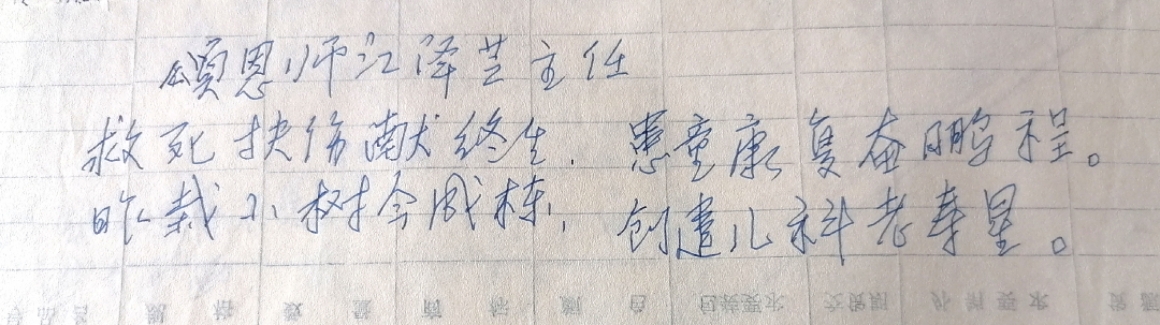 颂恩师江泽芸主任
救死扶伤献终生. 患童康复奋鹏程。
昨栽小树今成栋, 创造儿科老寿星。